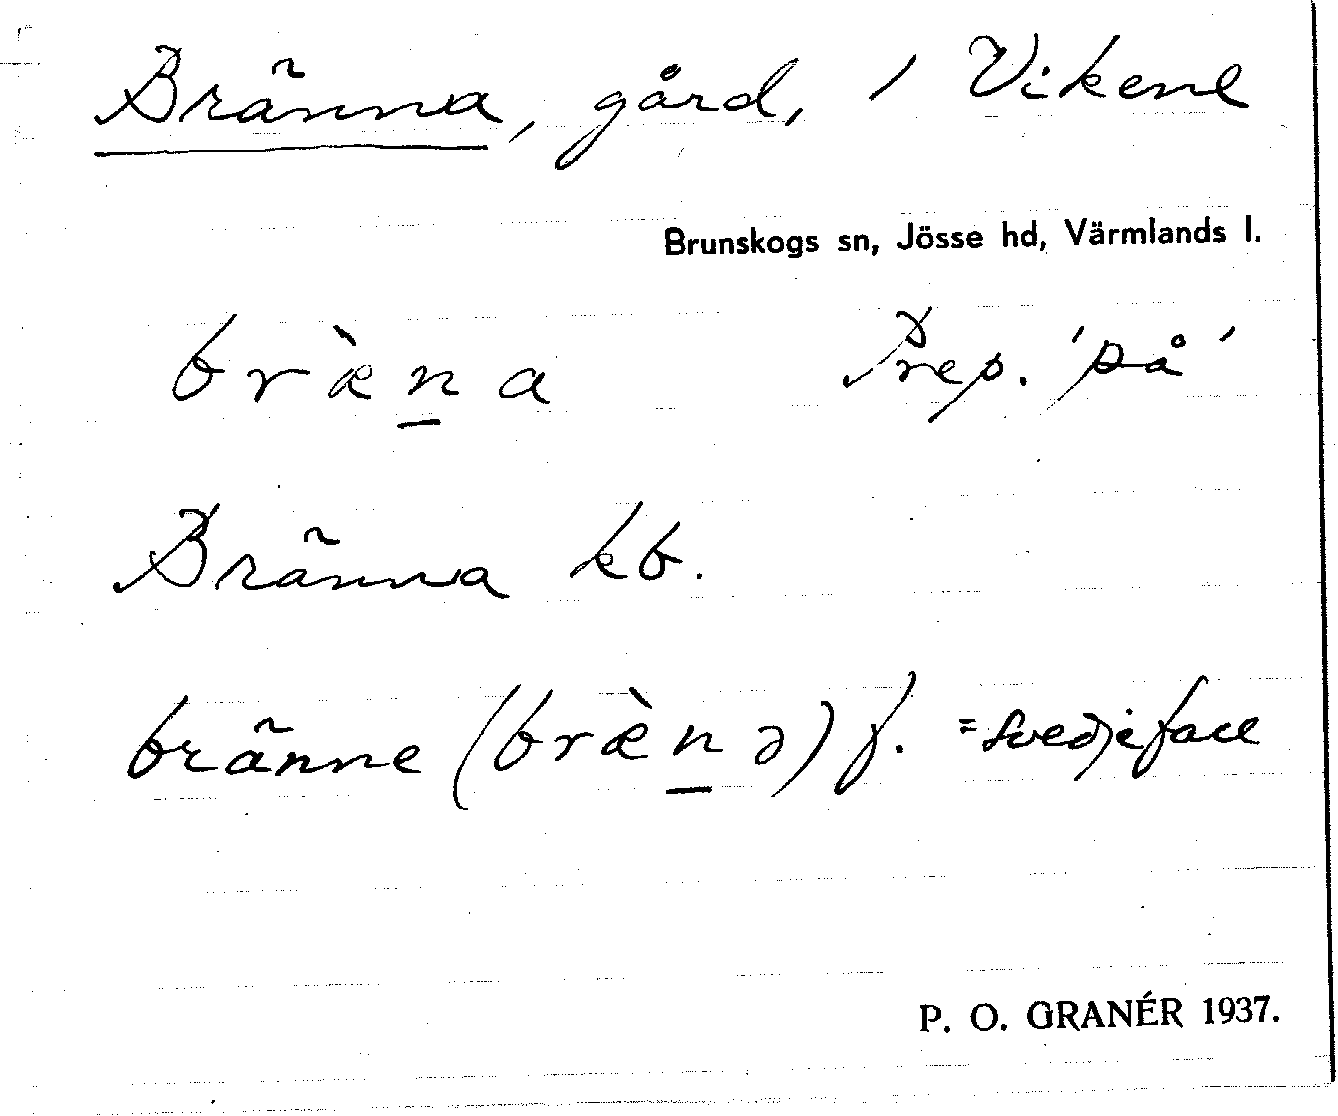 Bränna, gård, 1 Vikene
Brunskogs sn, Jösse hd, Värmlands l.
bræ̀n̲a Prep. 'på'
Bränna kb.
bränne (bræ̀n̲ə) f. = svedjefall
P. O. GRANÉR 1937.